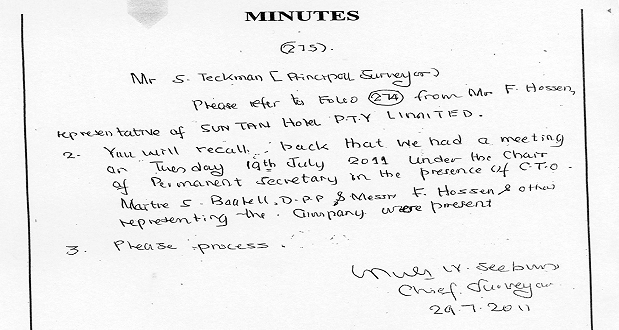 MINUTES
(275).
Mr S. Teckman [Principal Surveyor)
Please refer to Folio (274) from Mr F. Hossen,
representative of SUN TAN Hotel P.T.Y LIMITED.
2- You will recall back that we had a meeting
on Tuesday 19th July 2011 under the Chair
of Permanent Secretary in the presence of C.T.O.
S. D.P.P & Messrs F. Hossen & other
representing the Company were present
3. Please process.
Seebun
Chief Surveyor
29.7.2011